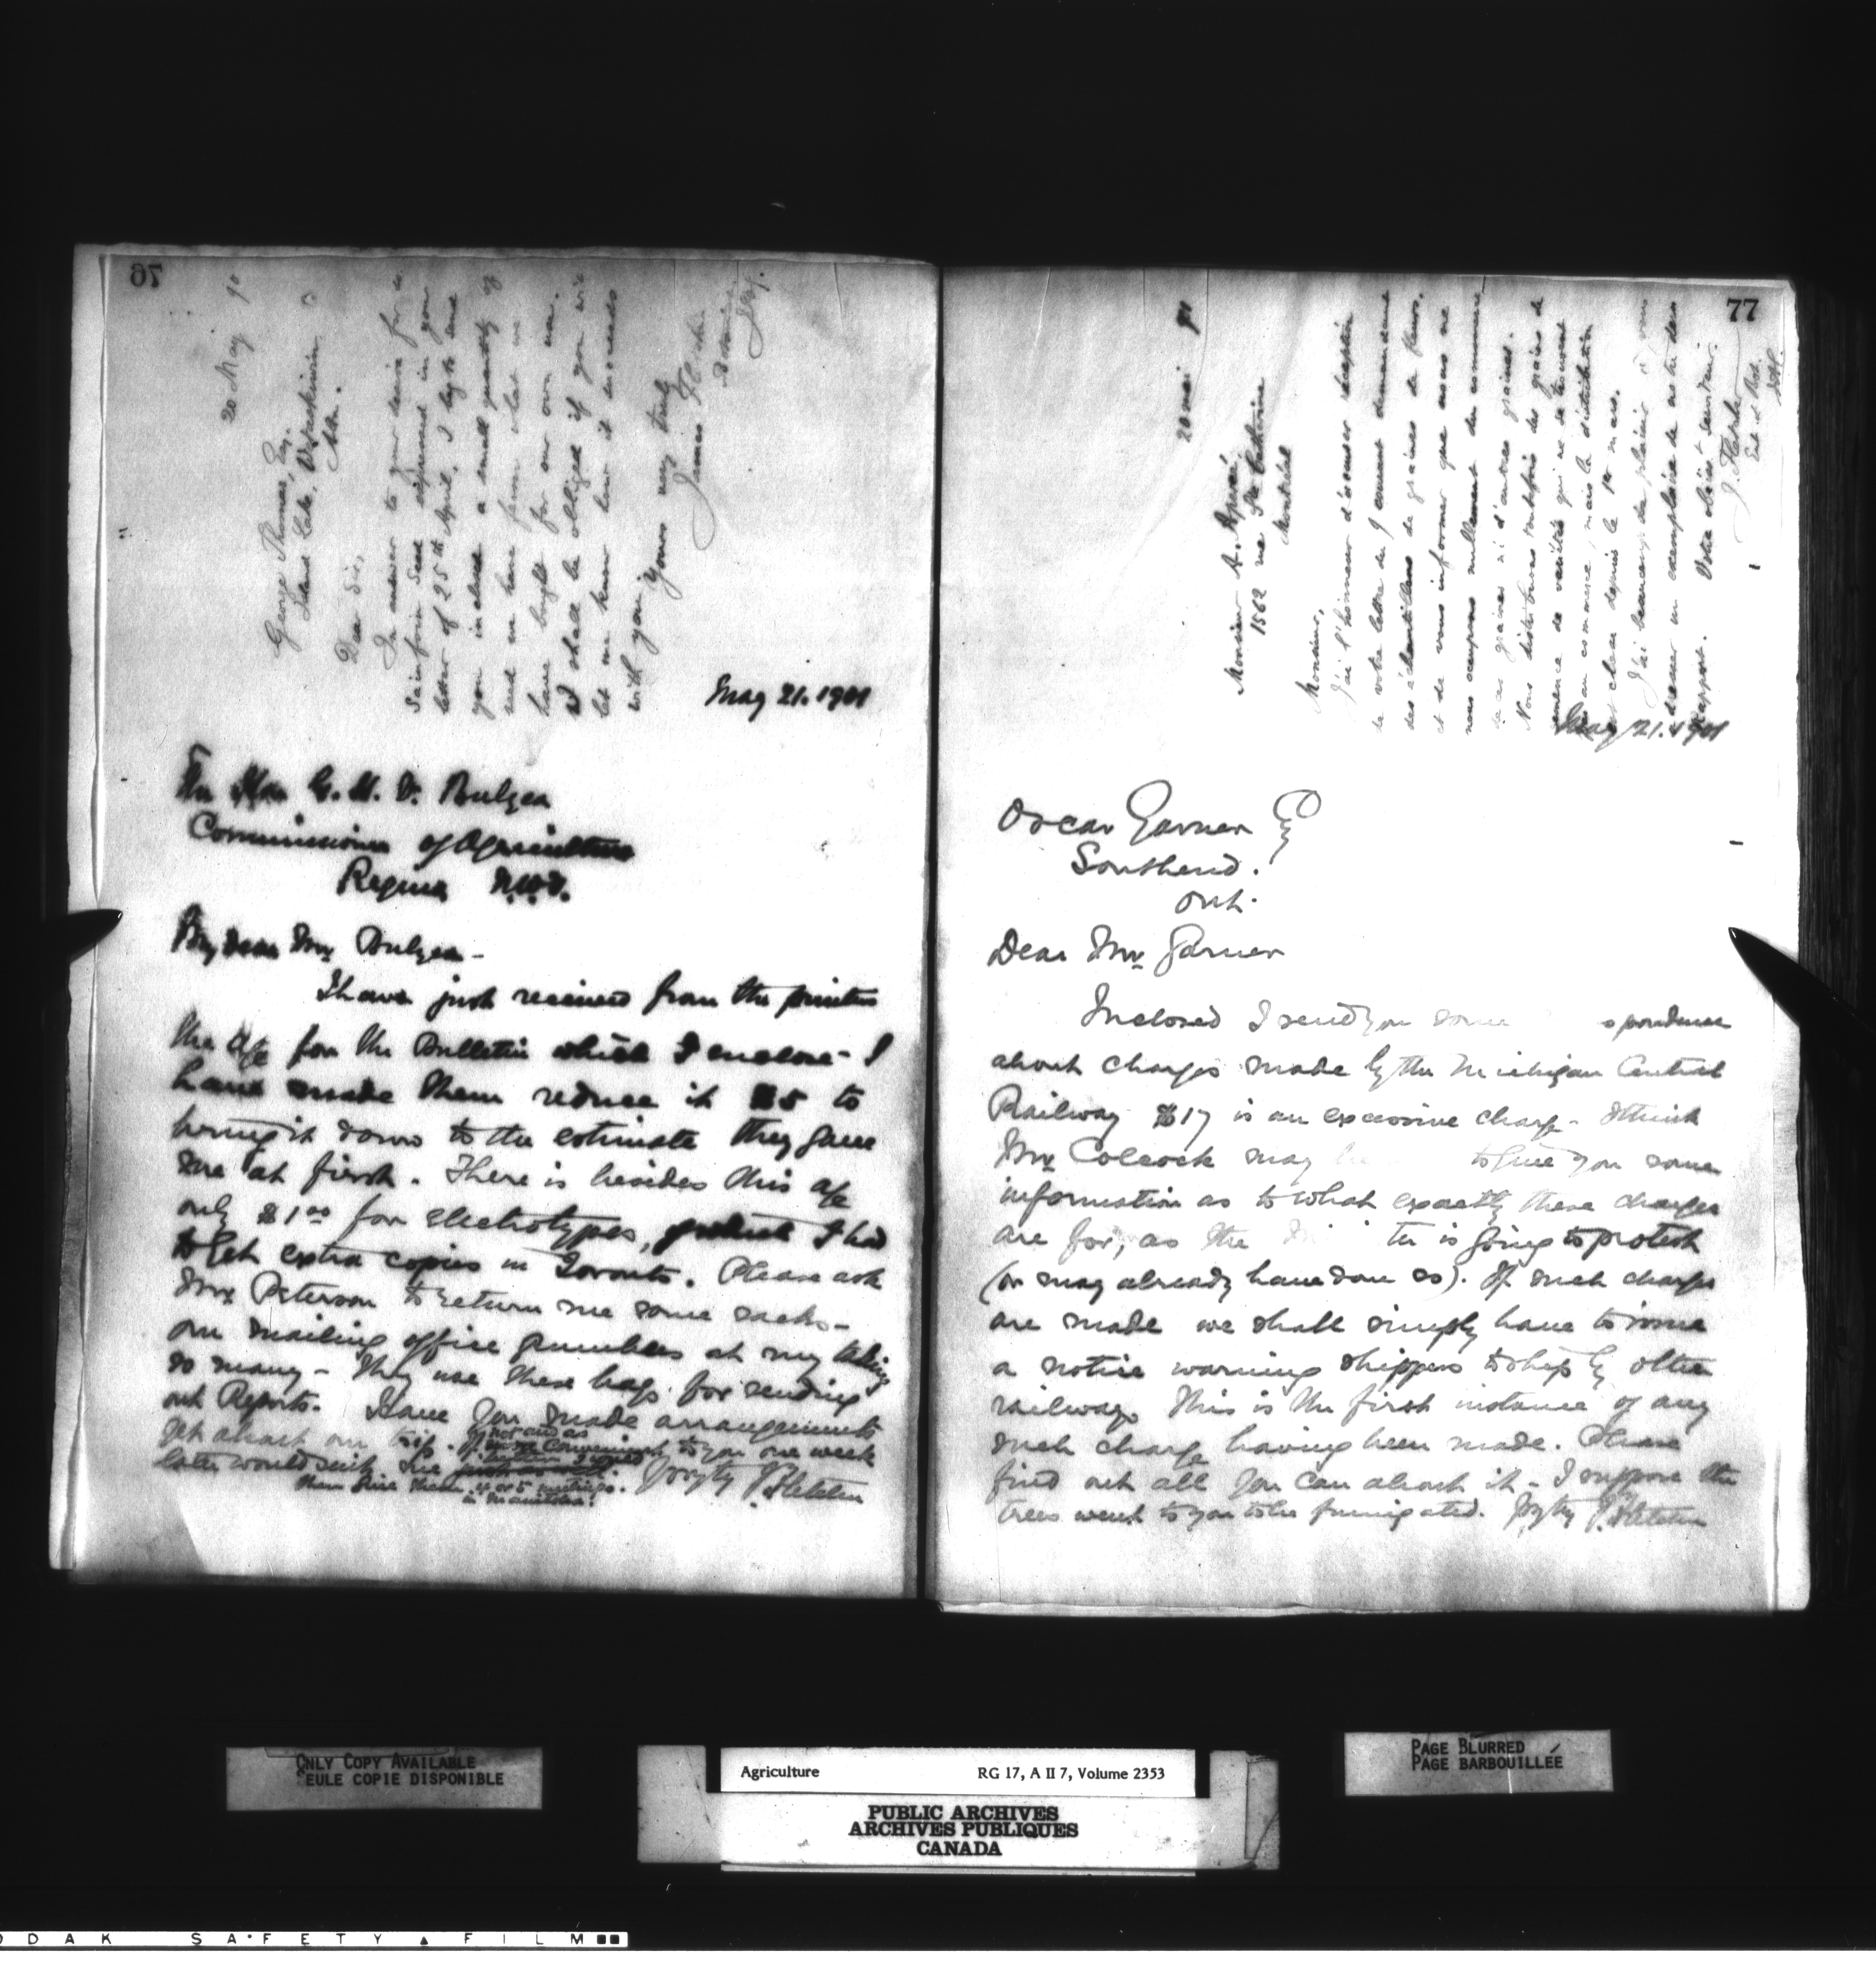 76
20 May 90
George Thomas, Esq.
Island Lake, Wetaskiwin
Alta.
Dear Sir,
In answer to your desire for a
Sainfoin Seed expressed in your
letter of 25th April, I beg to send
you inclosed a small quantity of
seed we have from what we
have bought for our own use.
I shall be obliged if you will
let me know how it succeeds
with you.
Yours very truly
James Fletcher
May 21. 1901
The Hon G. H. V. Bulyea
Commissioner of Agriculture
Regina N.W.T.
My dear Mr Bulyea -
I have just received from the printers
the a/c for the Bulletin which I enclose - I
have made them reduce it $5 to
bring it down to the estimate they gave
me at first. There is besides this a/c
only $1.00 for electrotypes, I had
to get extra copies in Toronto. Please ask
Mr Peterson to return me some sacks -
our mailing office grumbles at my taking
so many - They use these bags for sending
out Reports. Have you made arrangements
yet about our trip. If more convenient to you one week
later would suit me
then give them 4 or 5 meetings
in Manitoba.
J. Fletcher
77
20 mai 90
Monsieur A.
1562 rue Ste Catherine
Montréal
Monsieur,
J'ai l'honneur d'accuser réception
de votre lettre du 7 courant demandant
des échantillons de graines de fleurs,
et de vous informer que nous ne
nous occupons nullement du commerce
de ces graines ni d'autres graines.
Nous distribuons toutefois des grains de
semence de variétés qui ne se trouvent
pas au commerce, mais la distribution
est close depuis le 1er mars.
J'ai beaucoup de plaisir à vous
adresser un exemplaire de notre dernier
Rapport. Votre obéisst serviteur.
J. Fletcher
Ent. et Bot.
May 21. 1901
Oscar Garner Esq
Southend.
Ont.
Dear Mr Garner
Inclosed I send you some spondence
about charges made by the Michigan Central
Railway $17 is an excessive charge - I think
Mr Colcock may be to give you some
information as to what exactly these charges
are for, as the ter is going to protest
(or may already have done so). If such charges
are made we shall simply have to issue
a notice warning shippers to ship by other
railways. This is the first instance of any
such charge having been made. Please
find out all you can about it - I suppose the
trees went to you to be fumigated. J. Fletcher
ONLY COPY AVAILABLE
SEULE COPIE DISPONIBLE
Agriculture RG 17, A II 7, Volume 2353
PUBLIC ARCHIVES
ARCHIVES PUBLIQUES
CANADA
PAGE BLURRED
PAGE BARBOUILLÉE
ODAK SAFETY FILM